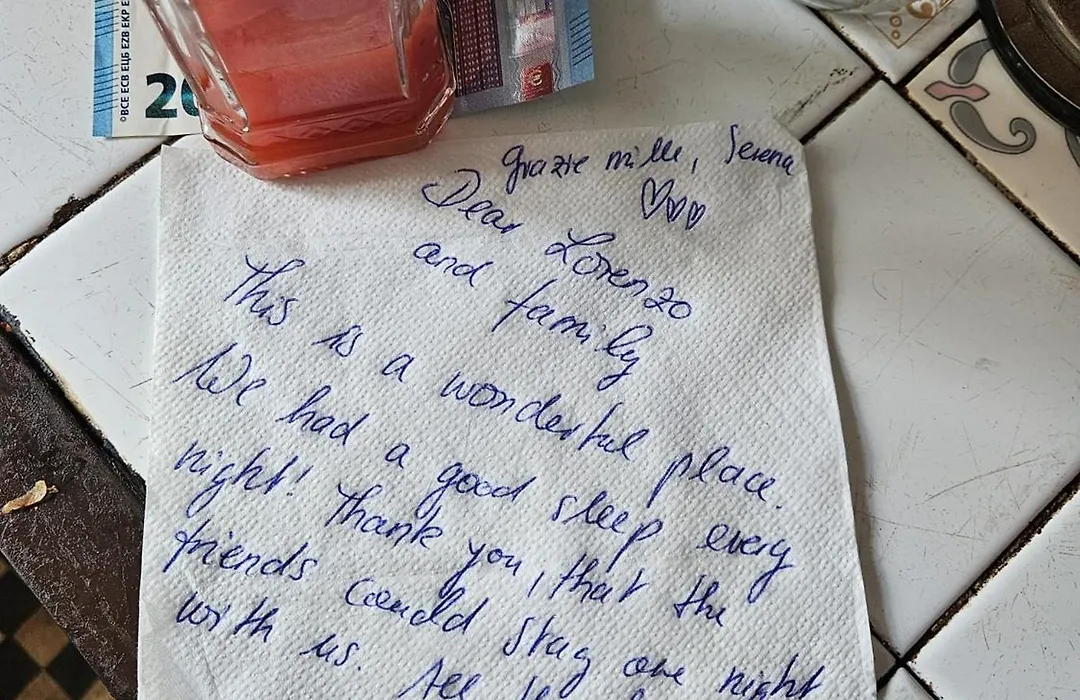 ©BCE ECB ЕЦБ EZB EKP E
20
grazie mille, Serena
Dear Lorenzo
and family
This is a wonderful place.
We had a good sleep every
night! Thank you, that the
friends could stay one night
with us. All